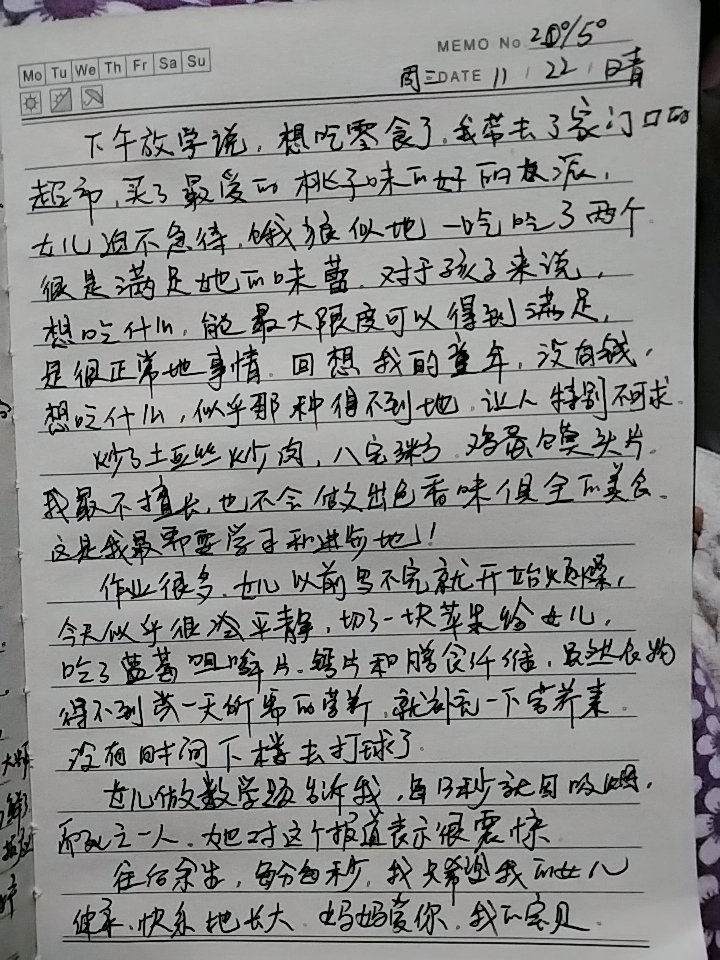 Mo Tu We Th Fr Sa Su
MEMO No 20°/5°
周三 DATE 11 / 22 / 晴
下午放学说,想吃零食了,我带去了家门口的
超市,买了最爱的桃子味的好的派,
女儿迫不急待,饿狼似地一吃吃了两个
很是满足她的味蕾。对于孩子来说,
想吃什么,能最大限度可以得到满足,
是很正常地事情。回想我的童年,没有钱,
想吃什么,似乎那种得不到地,让人特别不可求。
炒了土豆丝炒肉,八宝粥,鸡蛋馍头片。
我最不擅长,也不会做出色香味俱全的美食。
这是我最需要学习和进步地!
作业很多,女儿以前写不完就开始烦燥,
今天似乎很冷平静,切了一块苹果给女儿,
吃了蓝莓咀嚼片、钙片和膳食纤维,虽然食物
得不到一天所需的营养,就补充一下营养素。
没有时间下楼去打球了。
女儿做数学题告诉我,每13秒就因吸烟,
而死亡一人。她对这个报道表示很震惊
往后余生,每分每秒,我只希望我的女儿
健康、快乐地长大。妈妈爱你,我的宝贝。
大师
鲜